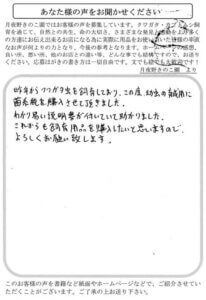 あなた様の声をお聞かせください
月夜野きのこ園ではお客様の声を募集しています。クワガタ・カブトムシ飼
育を通じて、自然との共生、命の大切さ、さまざまな発見
の方達にお伝え出来るお店になる為に実際に商品をお使い
なお声が何よりの力となり、今後の参考となります。ホームページの感想、
良い所、悪い所、他のお店との違い等、どんな事でも結構ですので、お送り
ください。応援はがきの書き方は一切自由です。文でも絵でも大歓迎です！
月夜野きのこ園 より
昨年からクワガタ虫を飼育しており、この度、幼虫の飼育に
菌糸瓶を購入させて頂きました。
わかり易い説明書が付いていて助かりました。
これからも飼育用品を購入したいと思いますので
よろしくお願い致します。
このお客様の声を書籍など紙面やホームページなどで、ご紹介させていた
だくことがございます。ご了承の上お送り下さい。